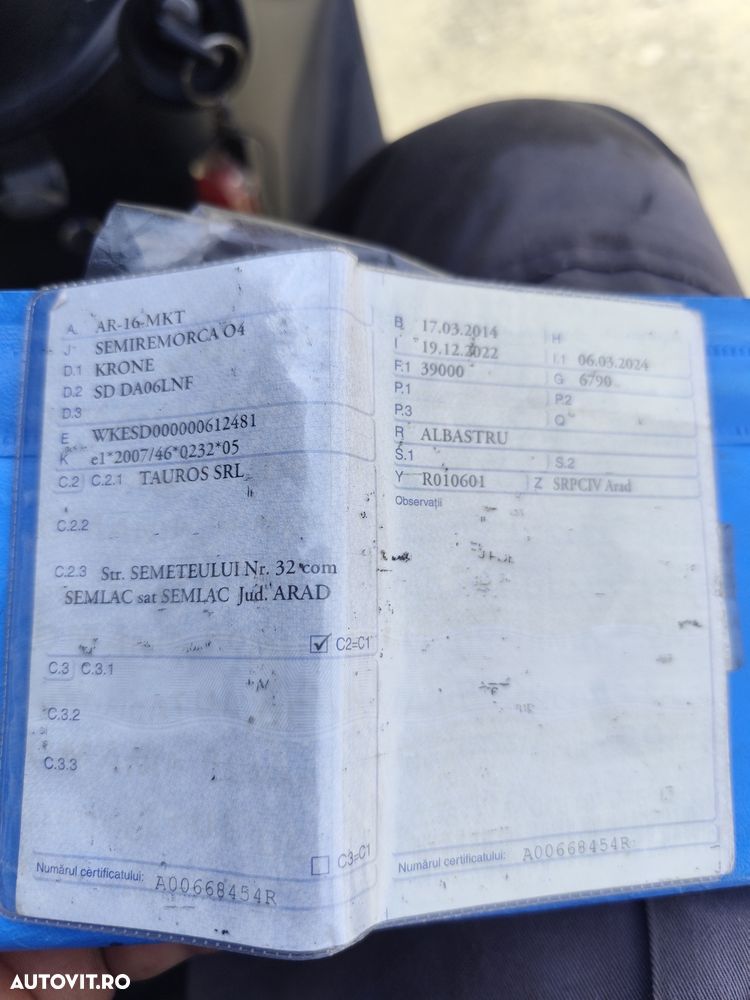 A AR-16-MKT
J SEMIREMORCA O4
D.1 KRONE
D.2 SD DA06LNF
D.3
E WKESD000000612481
K e1*2007/46*0232*05
C.2 C.2.1 TAUROS SRL
C.2.2
C.2.3 Str. SEMETEULUI Nr. 32 com
SEMLAC sat SEMLAC Jud. ARAD
C2=C1
C.3 C.3.1
C.3.2
C.3.3
C3=C1
Numărul certificatului: A00668454R
B 17.03.2014 H
I 19.12.2022 I.1 06.03.2024
F.1 39000 G 6790
P.1 P.2
P.3 Q
R ALBASTRU
S.1 S.2
Y R010601 Z SRPCIV Arad
Observații
Numărul certificatului: A00668454R
AUTOVIT.RO